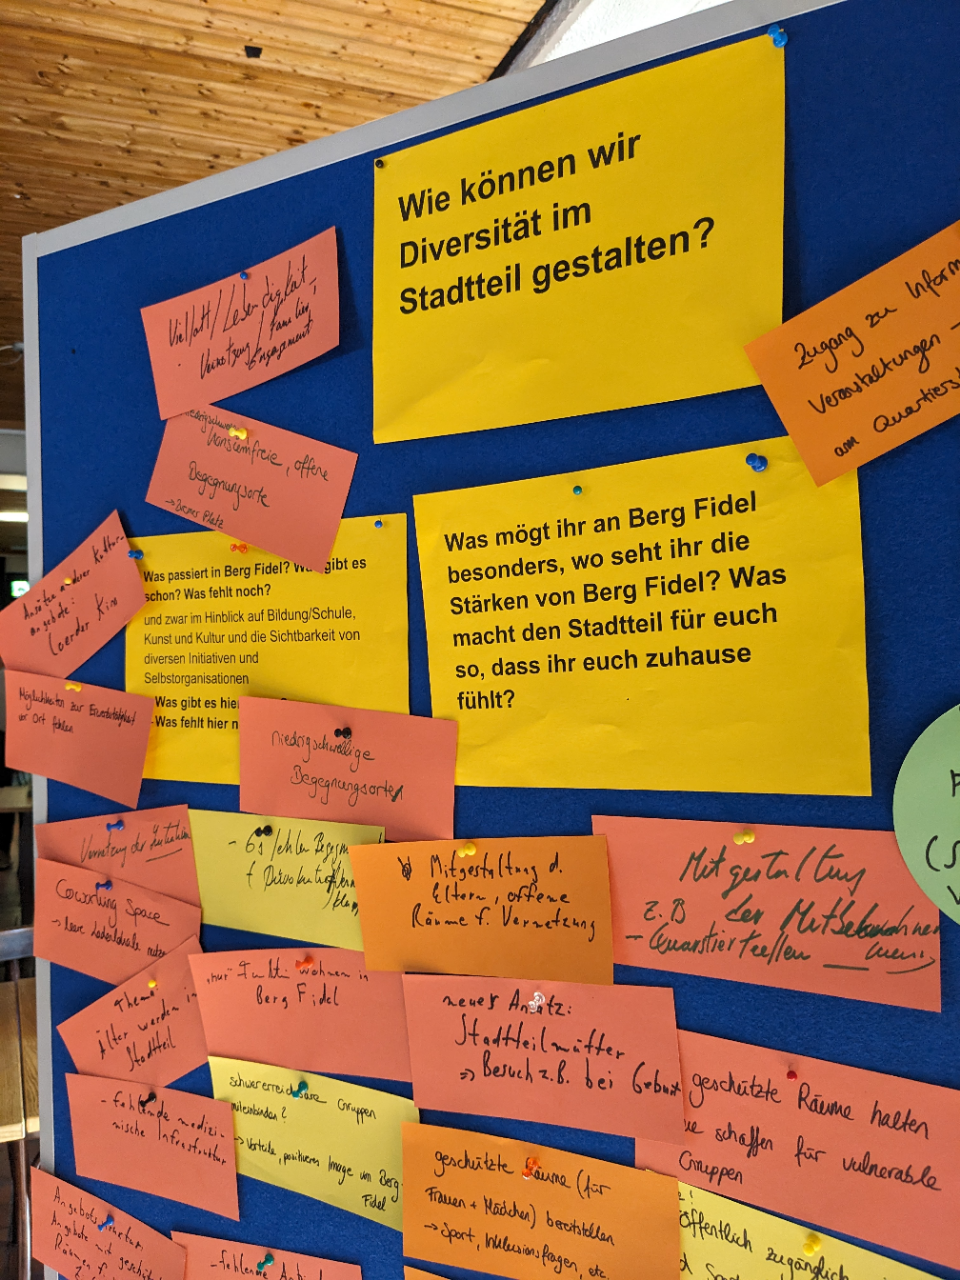 Wie können wir
Diversität im
Stadtteil gestalten?
Vielfalt/Lebendigkeit
Vernetzung / Familien
Engagement
Zugang zu Inform
Veranstaltungen -
am Quartiers
konsumfreie, offene
Begegnungsorte
Was mögt ihr an Berg Fidel
besonders, wo seht ihr die
Stärken von Berg Fidel? Was
macht den Stadtteil für euch
so, dass ihr euch zuhause
fühlt?
Was passiert in Berg Fidel? Was gibt es
schon? Was fehlt noch?
und zwar im Hinblick auf Bildung/Schule,
Kunst und Kultur und die Sichtbarkeit von
diversen Initiativen und
Selbstorganisationen
Was gibt es hie
-Was fehlt hier n
Kultur-
angebote:
Kino
Möglichkeiten zur Erwerbstätigkeit
vor Ort fehlen
niedrigschwellige
Begegnungsorten
Vernetzung der
- Es fehlen Begegn
Mitgestaltung d.
Eltern, offene
Räume f. Vernetzung
Mitgestaltung
z.B. der
- Quartier
Coworking Space
→ leere Ladenlokale nutzen
"nur" wohnen in
Berg Fidel
Thema
Älter werden im
Stadtteil
neuer Ansatz:
Stadtteilmütter
=> Besuch z.B. bei Geburt
geschützte Räume halten
schaffen für vulnerable
Gruppen
- fehlende medizi-
nische Infrastruktur
schwererreichbare Gruppen
miteinbinden?
→ Vorteile, positiveres Image von Berg
Fidel
geschützte Räume (für
Frauen + Mädchen) bereitstellen
→ Sport, Inklusionsfragen, etc.
öffentlich zugänglich
Angebote mit
- fehlende